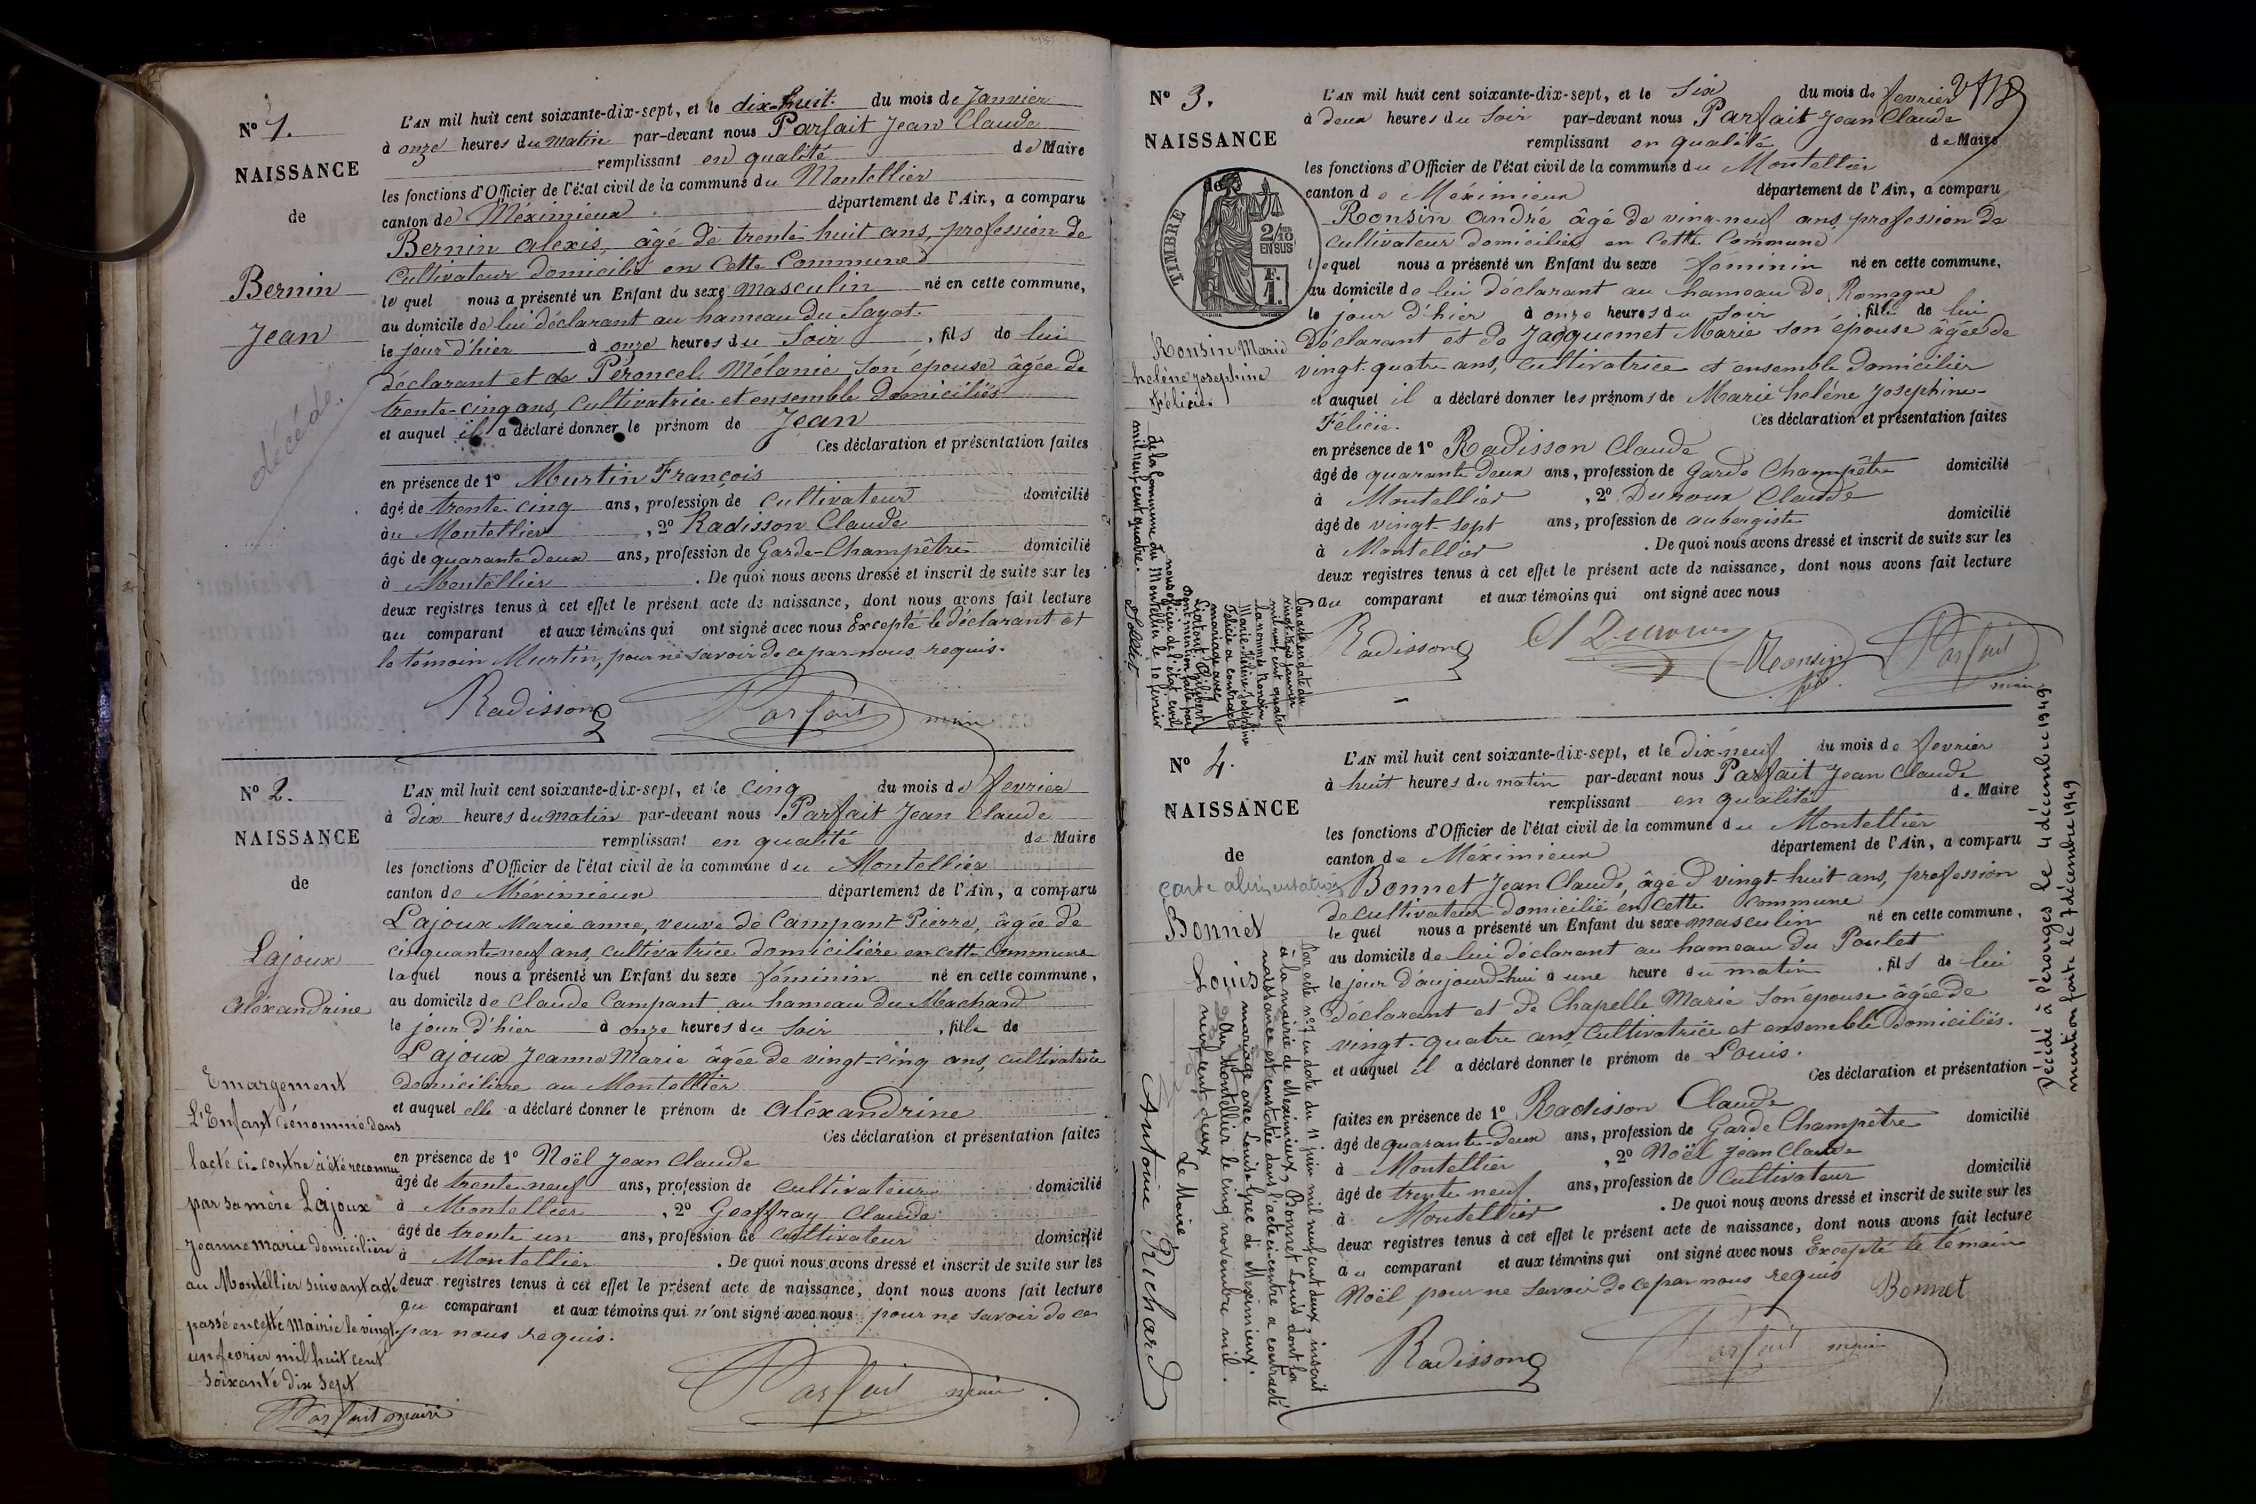 N° 1.
NAISSANCE
de
Bernin
Jean
décédé.
L'AN mil huit cent soixante-dix-sept, et le dix-huit du mois de Janvier
à onze heures du matin par-devant nous Parfait Jean Claude
remplissant en qualité de Maire
les fonctions d'Officier de l'état civil de la commune du Montellier
canton de Méximieux département de l'Ain, a comparu
Bernin alexis, âgé de trente huit ans, profession de
Cultivateur domicilié en cette Commune
le quel nous a présenté un Enfant du sexe masculin né en cette commune,
au domicile de lui déclarant au hameau du Sayot.
le jour d'hier à onze heures du Soir, fils de lui
déclarant et de Péroncel Mélanie, son épouse âgée de
trente-cinq ans, Cultivatrice et ensemble domiciliés
et auquel il a déclaré donner le prénom de Jean
Ces déclaration et présentation faites
en présence de 1° Murtin François
âgé de trente cinq ans, profession de cultivateur domicilié
au Montellier, 2° Radisson Claude
âgé de quarante deux ans, profession de Garde-Champêtre domicilié
à Montellier. De quoi nous avons dressé et inscrit de suite sur les
deux registres tenus à cet effet le présent acte de naissance, dont nous avons fait lecture
au comparant et aux témoins qui ont signé avec nous Excepté le déclarant et
le témoin Murtin, pour ne savoir de ce par nous requis.
Radisson Parfait maire
N° 2.
NAISSANCE
de
Lajoux
alexandrine
Emargement
L'Enfant dénommé dans
l'acte ci contre a été reconnu
par sa mère Lajoux
Jeanne marie domiciliée
au Montellier suivant acte
passé en cette Mairie le vingt
un fevrier mil huit cent
soixante dix sept
Parfait maire
L'AN mil huit cent soixante-dix-sept, et le cinq du mois de fevrier
à dix heures du matin par-devant nous Parfait Jean Claude
remplissant en qualité de Maire
les fonctions d'Officier de l'état civil de la commune du Montellier
canton de Méximieux département de l'Ain, a comparu
Lajoux Marie anne, veuve de Campant Pierre, âgée de
cinquante neuf ans, cultivatrice domicilière en cette Commune
laquel nous a présenté un Enfant du sexe féminin né en cette commune,
au domicile de Claude Campant au hameau du Machard
le jour d'hier à onze heures du soir, fille de
Lajoux Jeanne Marie âgée de vingt-cinq ans, cultivatrice
domicilière au Montellier
et auquel elle a déclaré donner le prénom de alexandrine
Ces déclaration et présentation faites
en présence de 1° Noël Jean Claude
âgé de trente neuf ans, profession de cultivateur domicilié
à Montellier, 2° Geoffray Claude
âgé de trente un ans, profession de cultivateur domicilié
à Montellier. De quoi nous avons dressé et inscrit de suite sur les
deux registres tenus à cet effet le présent acte de naissance, dont nous avons fait lecture
au comparant et aux témoins qui n'ont signé avec nous pour ne savoir de ce
par nous requis.
Parfait maire
N° 3.
NAISSANCE
de
TIMBRE
2/10 EN SUS
F. 1.
Ronsin Marie
heléne Josephine
Félicie.
L'AN mil huit cent soixante-dix-sept, et le Six du mois de fevrier
à deux heures du Soir par-devant nous Parfait Jean Claude
remplissant en qualité de Maire
les fonctions d'Officier de l'état civil de la commune du Montellier
canton de Méximieux département de l'Ain, a comparu
Ronsin André âgé de vingt-neuf ans, profession de
cultivateur domicilié en cette Commune
lequel nous a présenté un Enfant du sexe féminin né en cette commune,
au domicile de lui déclarant au hameau de Romagne
le jour d'hier à onze heures du soir, fille de lui
déclarant et de Jacquemet Marie son épouse âgée de
vingt-quatre ans, Cultivatrice et ensemble domicilier
et auquel il a déclaré donner les prénoms de Marie heléne Josephine-
Félicie. Ces déclaration et présentation faites
en présence de 1° Radisson Claude
âgé de quarante deux ans, profession de Garde Champêtre domicilié
à Montellier, 2° Duroux Claude
âgé de vingt-sept ans, profession de aubergiste domicilié
à Montellier. De quoi nous avons dressé et inscrit de suite sur les
deux registres tenus à cet effet le présent acte de naissance, dont nous avons fait lecture
au comparant et aux témoins qui ont signé avec nous
Radisson Cl Duroux Ronsin Parfait maire
Par acte en date du
vingt-trois janvier
mil neuf cent quatre
la nommée Ronsin
Marie-Hélène-Joséphine
Félicie a contracté
mariage avec
Philibert
Dont mention faite par
nous officier de l'état civil
de la Commune du Montellier le 10 fevrier
mil neuf cent quatre.
N° 4.
NAISSANCE
de
carte alimentation
Bonnet
Louis
L'AN mil huit cent soixante-dix-sept, et le dix-neuf du mois de fevrier
à huit heures du matin par-devant nous Parfait Jean Claude
remplissant en qualité de Maire
les fonctions d'Officier de l'état civil de la commune du Montellier
canton de Méximieux département de l'Ain, a comparu
Bonnet Jean Claude, âgé de vingt-huit ans, profession
de cultivateur domicilié en cette Commune
le quel nous a présenté un Enfant du sexe masculin né en cette commune,
au domicile de lui déclarant au hameau du Poulet
le jour d'aujourd'hui à une heure du matin, fils de lui
déclarant et de Chapelle Marie son épouse âgée de
vingt-quatre ans, Cultivatrice et ensemble Domiciliés.
et auquel il a déclaré donner le prénom de Louis.
Ces déclaration et présentation
faites en présence de 1° Radisson Claude
âgé de quarante-deux ans, profession de Garde Champêtre domicilié
à Montellier, 2° Noël Jean Claude
âgé de trente neuf ans, profession de Cultivateur domicilié
à Montellier. De quoi nous avons dressé et inscrit de suite sur les
deux registres tenus à cet effet le présent acte de naissance, dont nous avons fait lecture
au comparant et aux témoins qui ont signé avec nous Excepté le témoin
Noël pour ne savoir de ce par nous requis Bonnet
Radisson Parfait maire
Par acte n° 7 en date du 11 juin mil neuf cent deux, inscrit
à la mairie de Meximieux, Bonnet Louis dont la
naissance est constatée dans l'acte ci contre a contracté
mariage avec Louise Grec de Meximieux.
Au Montellier le cinq novembre mil
neuf cent deux
Le Maire
Antoine Richard
Décédé à Pérouges le 4 décembre 1949
mention faite le 7 décembre 1949